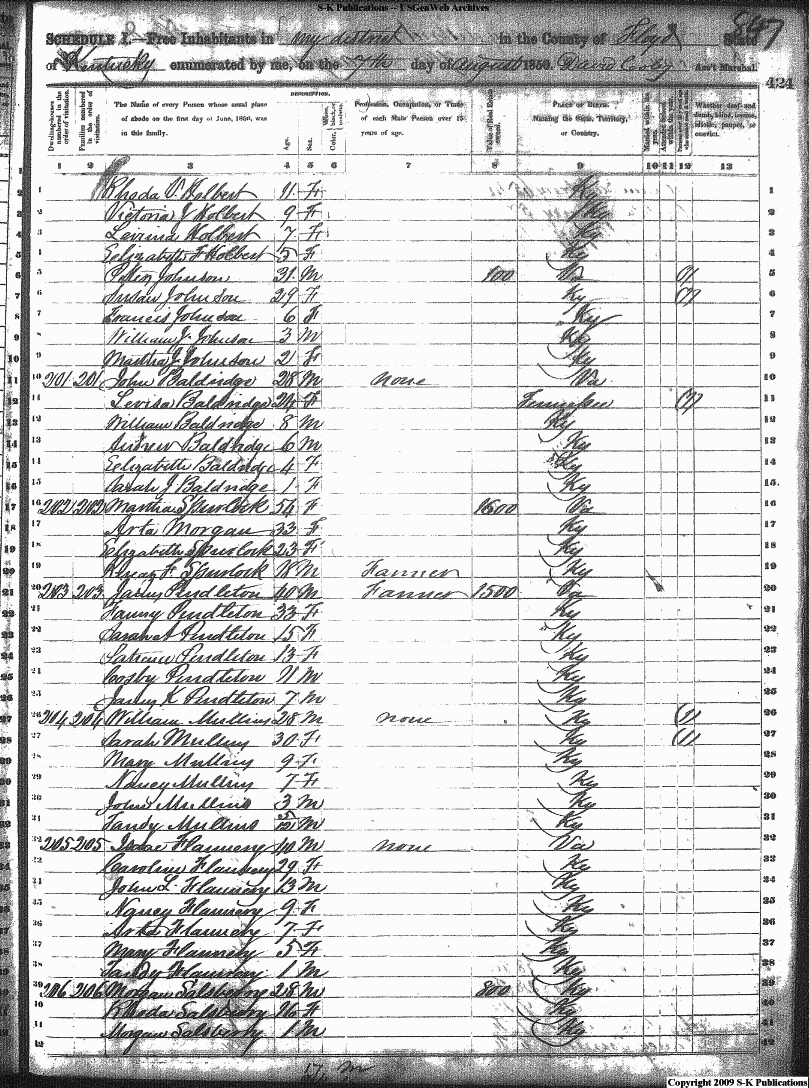 S-K Publications -- USGenWeb Archives
847
SCHEDULE I.—Free Inhabitants in my district in the County of Floyd State
of Kentucky enumerated by me, on the 7th day of August 1850. David Cooby Ass't Marshal.
424
Dwelling-houses numbered in the order of visitation.
Families numbered in the order of visitation.
The Name of every Person whose usual place of abode on the first day of June, 1850, was in this family.
DESCRIPTION.
Age.
Sex.
Color, White, black, or mulatto.
Profession, Occupation, or Trade of each Male Person over 15 years of age.
Value of Real Estate owned.
PLACE OF BIRTH. Naming the State, Territory, or Country.
Married within the year.
Whether deaf and dumb, blind, insane, idiotic, pauper, or convict.
1 2 3 4 5 6 7 8 9 10 11 12 13
1 Rhoda V. Holbert 11 F Ky 1
2 Victoria J Holbert 9 F Ky 2
3 Levina Holbert 7 F Ky 3
4 Eelizabeth F Holbert 5 F Ky 4
5 Johnson 31 M 100 Va (1) 5
6 Susan Johnson 29 F Ky (1) 6
7 Francis Johnson 6 F Ky 7
8 William J. Johnson 3 M Ky 8
9 Martha J. Johnson 2 F Ky 9
10 201 201 John Baldridge 28 M none Va 10
11 Levisa Baldridge 24 F Tennessee (1) 11
12 William Baldridge 8 M Ky 12
13 Andrew Baldridge 6 M Ky 13
14 Eelizabeth Baldridge 4 F Ky 14
15 Sarah J Baldridge 1 F Ky 15
16 202 202 Martha Spurlock 54 F 1600 Va 16
17 Arta Morgan 33 F Ky 17
18 Elizabeth Spurlock 23 F Ky 18
19 F Spurlock 18 M Farmer Ky 19
20 203 203 James Pendleton 40 M Farmer 1500 Va 20
21 Fanny Pendleton 33 F Ky 21
22 Sarah A Pendleton 15 F Ky 22
23 Pendleton 13 F Ky 23
24 Cosby Pendleton 11 M Ky 24
25 James K Pendleton 7 M Ky 25
26 204 204 William Mullins 28 M none Ky (1) 26
27 Sarah Mullins 30 F Ky (1) 27
28 Mary Mullins 9 F Ky 28
29 Nancy Mullins 7 F Ky 29
30 John Mullins 3 M Ky 30
31 Tandy Mullins M Ky 31
32 205 205 Isaac Flannery 40 M none Va 32
33 Caroline Flannery 29 F Ky 33
34 John L. Flannery 13 M Ky 34
35 Nancy Flannery 9 F Ky 35
36 Arta Flannery 7 F Ky 36
37 Mary Flannery 5 F Ky 37
38 Tandy Flannery 1 M Ky 38
39 206 206 Morgan Salsberry 28 M 800 Ky 39
40 Rhoda Salsberry 26 F Ky 40
41 Morgan Salsberry 1 M Ky 41
42 42
17. m
Copyright 2009 S-K Publications